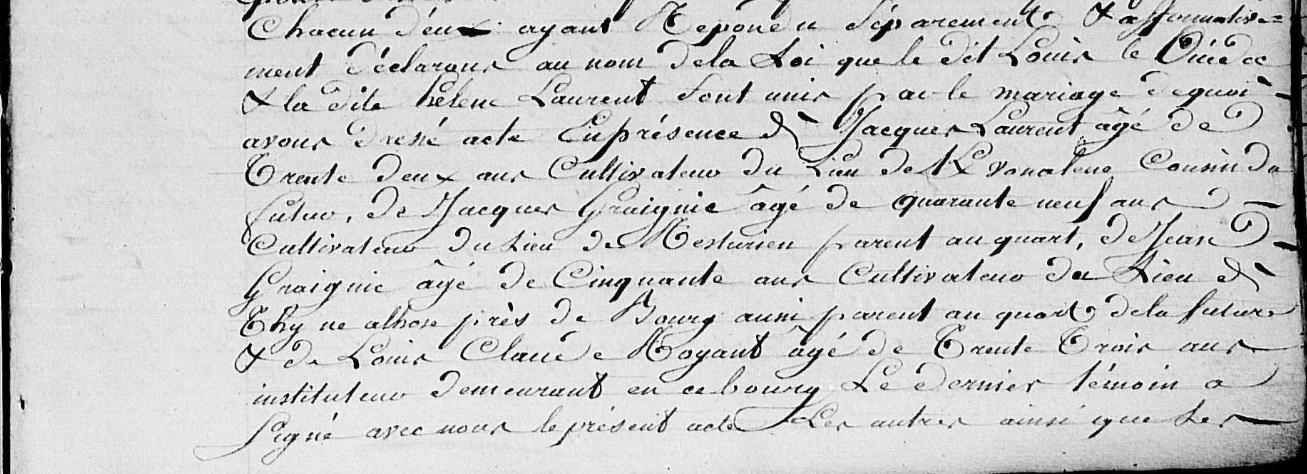 Chacun d'eux ayant Repondu Séparement & affirmative=
ment déclarons au nom dela Loi que le dit Louis le
& la dite hélene Laurent Sont unis par le mariage dequoi
avons dressé acte En présence de Jacques Laurent âgé de
Trente deux ans Cultivateur du Lieu de Cousin du
futur, de Jacques Graignic âgé de quarante neuf ans
Cultivateur du Lieu de Mesturien parent au quart, de Jean
Graignic âgé de Cinquante ans Cultivateur du Lieu de
près de Bourg aussi parent au quart dela future
& de Louis Claude Noyant âgé de Trente Trois ans
instituteur demeurant en ce bourg Le dernier témoin a
Signé avec nous le présent acte Les autres ainsi que Les